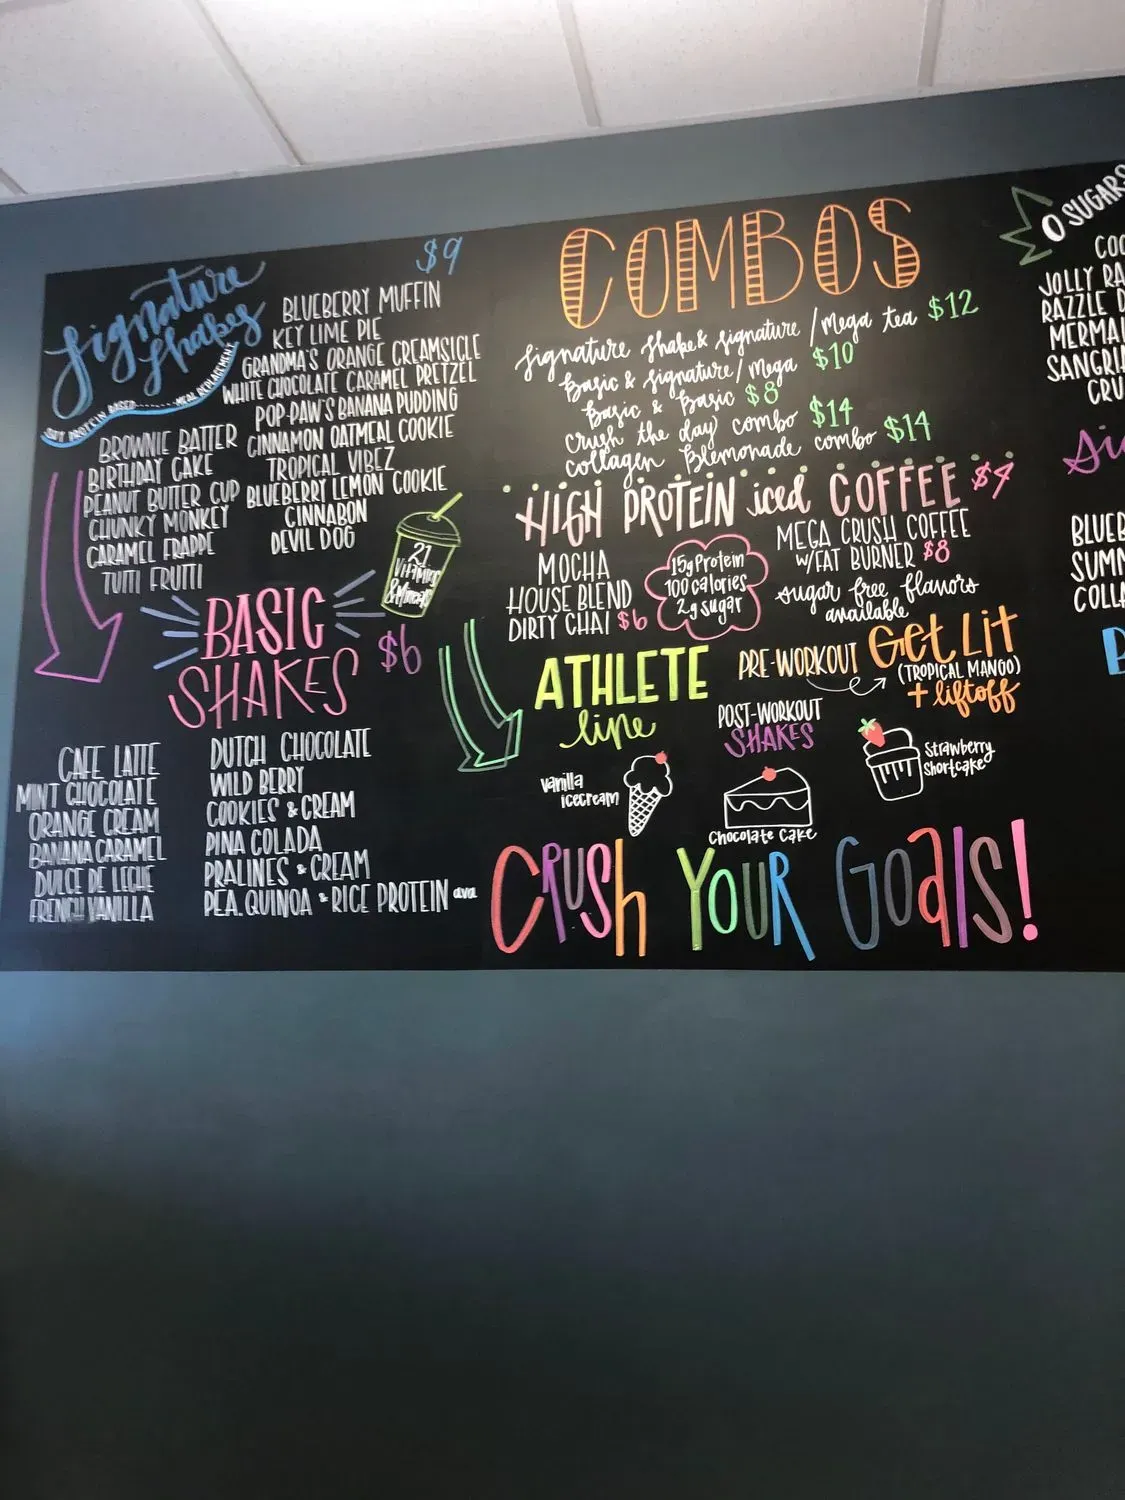 Signature
Shakes
SOY PROTEIN BASED........MEAL REPLACEMENT
$9
BLUEBERRY MUFFIN
KEY LIME PIE
GRANDMA'S ORANGE CREAMSICLE
WHITE CHOCOLATE CARAMEL PRETZEL
POP-PAW'S BANANA PUDDING
CINNAMON OATMEAL COOKIE
TROPICAL VIBEZ
BLUEBERRY LEMON COOKIE
CINNABON
DEVIL DOG
BROWNIE BATTER
BIRTHDAY CAKE
PEANUT BUTTER CUP
CHUNKY MONKEY
CARAMEL FRAPPE
TUTTI FRUTTI
21
Vitamins
& Minerals
BASIC
SHAKES
$6
CAFE LATTE
MINT CHOCOLATE
ORANGE CREAM
BANANA CARAMEL
DULCE DE LECHE
FRENCH VANILLA
DUTCH CHOCOLATE
WILD BERRY
COOKIES & CREAM
PINA COLADA
PRALINES & CREAM
PEA, QUINOA & RICE PROTEIN ava
COMBOS
Signature Shake & Signature / Mega tea $12
Basic & Signature / Mega $10
Basic & Basic $8
Crush the day combo $14
Collagen Blemonade combo $14
HIGH PROTEIN iced COFFEE $4
MOCHA
HOUSE BLEND
DIRTY CHAI $6
15g Protein
100 calories
2g sugar
MEGA CRUSH COFFEE
W/FAT BURNER $8
sugar free flavors
available
ATHLETE
line
PRE-WORKOUT
GET LIT
(TROPICAL MANGO)
+ liftoff
POST-WORKOUT
SHAKES
Vanilla
icecream
Chocolate Cake
Strawberry
Shortcake
CRUSH YOUR GOALS!
0 SUGARS
COC
JOLLY RA
RAZZLE D
MERMAI
SANGRI
CRU
Si
BLUEB
SUMM
COLLA